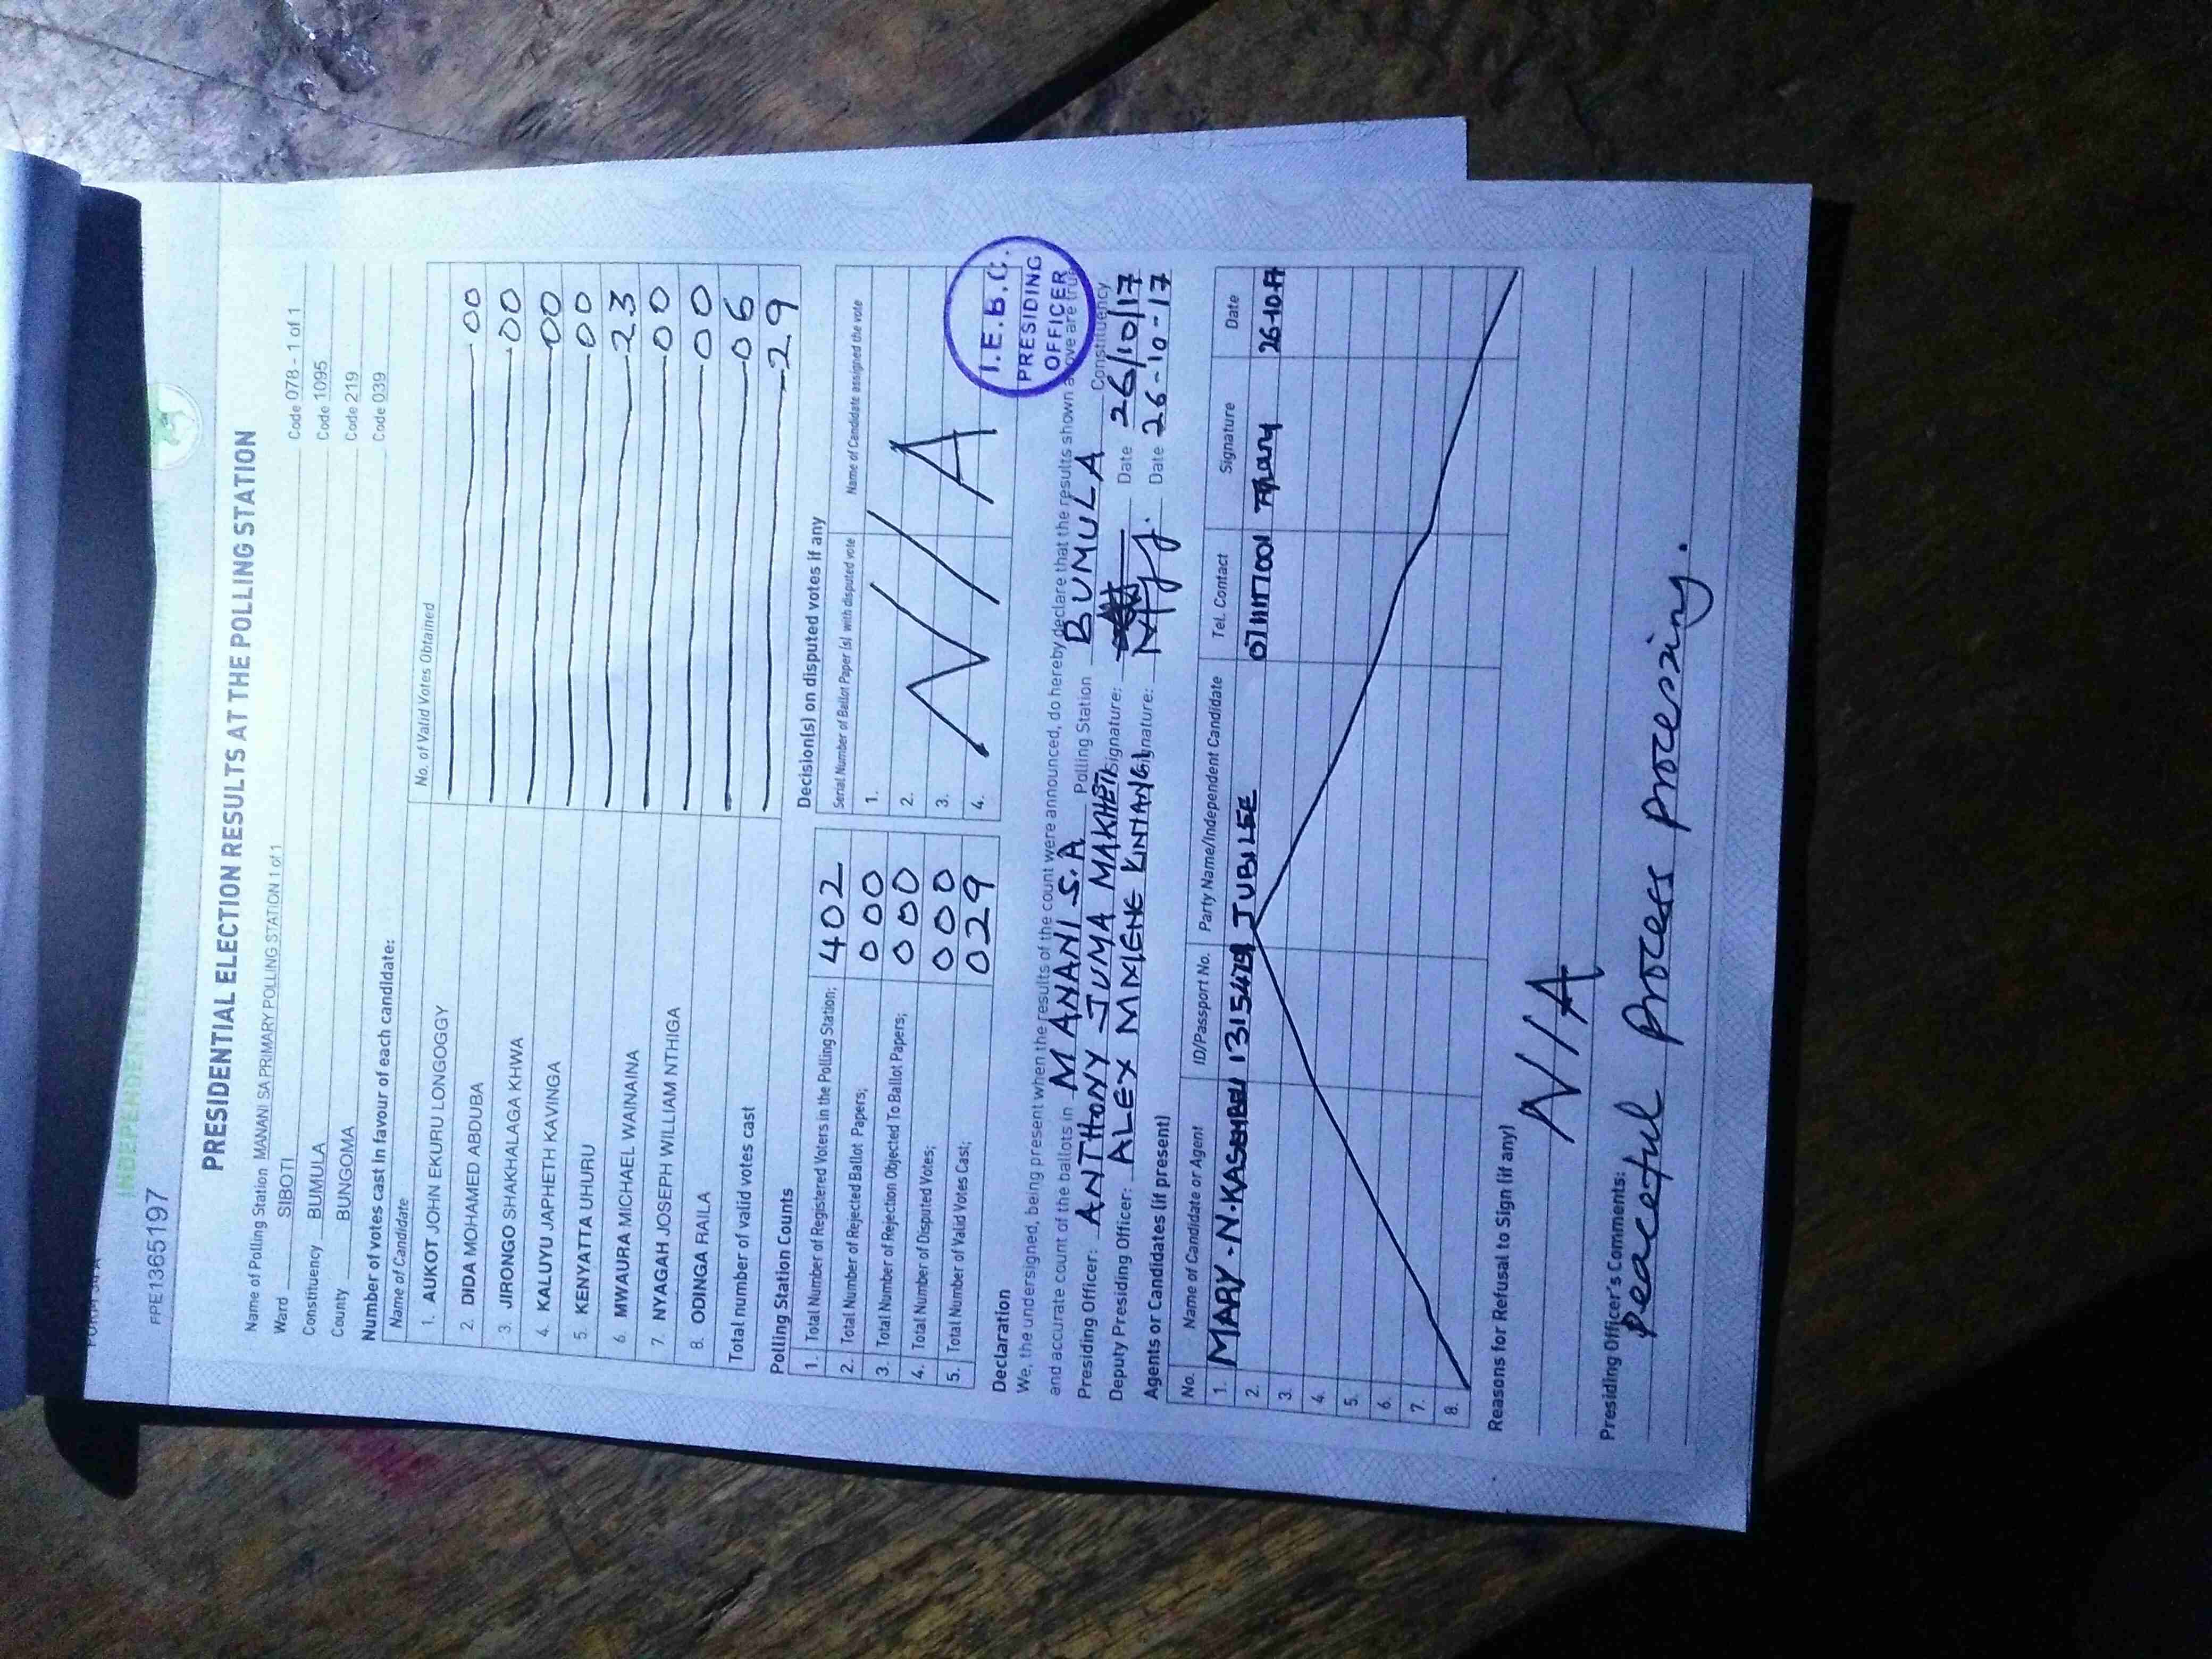 FPE1365197
PRESIDENTIAL ELECTION RESULTS AT THE POLLING STATION
Name of Polling Station MANANI SA PRIMARY POLLING STATION 1 of 1 Code 078 - 1 of 1
Ward SIBOTI Code 1095
Constituency BUMULA Code 219
County BUNGOMA Code 039
Number of votes cast in favour of each candidate:
Name of Candidate No. of Valid Votes Obtained
1. AUKOT JOHN EKURU LONGOGGY 00
2. DIDA MOHAMED ABDUBA 00
3. JIRONGO SHAKHALAGA KHWA 00
4. KALUYU JAPHETH KAVINGA 00
5. KENYATTA UHURU 23
6. MWAURA MICHAEL WAINAINA 00
7. NYAGAH JOSEPH WILLIAM NTHIGA 00
8. ODINGA RAILA 06
Total number of valid votes cast 29
Polling Station Counts
1. Total Number of Registered Voters in the Polling Station; 402
2. Total Number of Rejected Ballot Papers; 000
3. Total Number of Rejection Objected To Ballot Papers; 000
4. Total Number of Disputed Votes; 000
5. Total Number of Valid Votes Cast; 029
Decision(s) on disputed votes if any
Serial Number of Ballot Paper (s) with disputed vote Name of Candidate assigned the vote
1.
2.
3.
4.
N/A
I.E.B.C.
PRESIDING
OFFICER
Declaration
We, the undersigned, being present when the results of the count were announced, do hereby declare that the results shown above are true
and accurate count of the ballots in MANANI S.A Polling Station BUMULA Constituency
Presiding Officer: ANTHONY JUMA MAKHETI Signature: Date 26/10/17
Deputy Presiding Officer: ALEX Signature: Date 26-10-17
Agents or Candidates (if present)
No. Name of Candidate or Agent ID/Passport No. Party Name/Independent Candidate Tel. Contact Signature Date
1. MARY N. JUBILEE 26-10-17
2.
3.
4.
5.
6.
7.
8.
Reasons for Refusal to Sign (if any)
N/A
Presiding Officer's Comments:
Peaceful process processing.